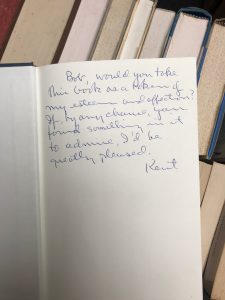 Bob, would you take
this book as a token of
my esteem and affection?
If, by any chance, you
found something in it
to admire, I'd be
greatly pleased.
Kent